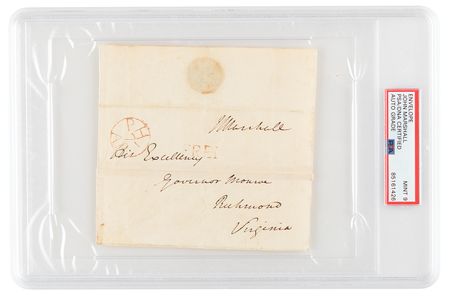 J Marshall
FREE
His Excellency
Governor Monroe
Richmond
Virginia
ENVELOPE
JOHN MARSHALL
PSA/DNA CERTIFIED
AUTO GRADE
MINT 9
85161426